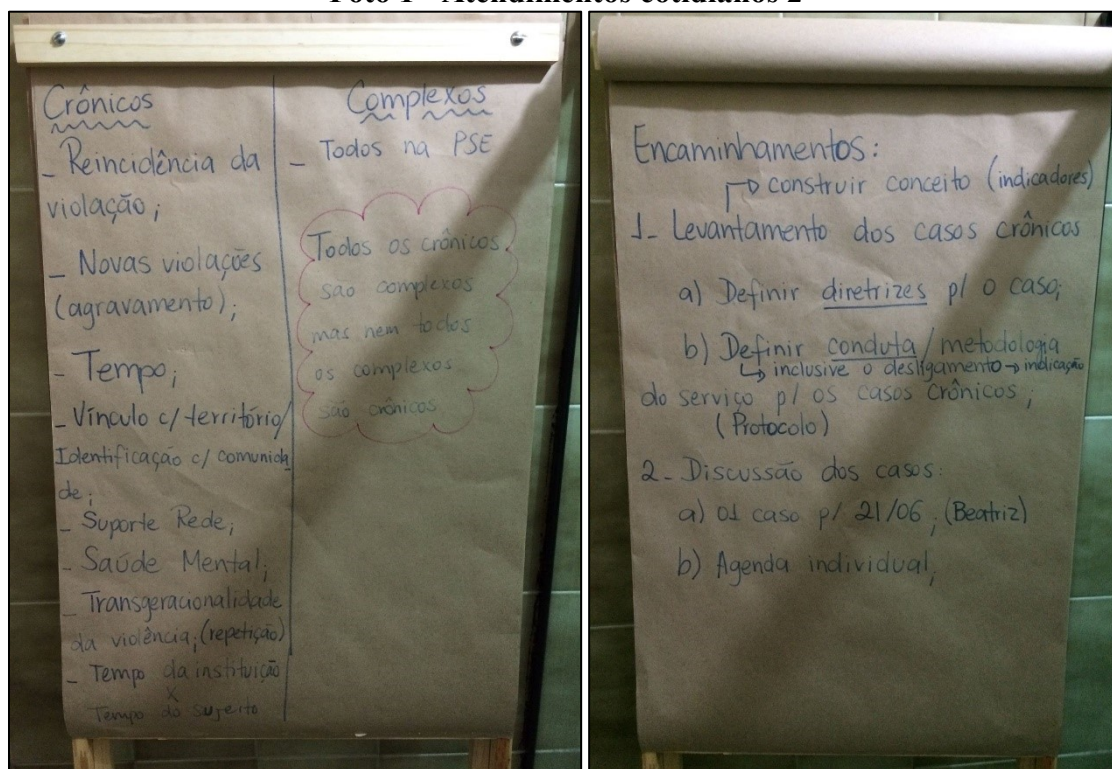 Foto 1 - Atendimentos cotidianos 2
Crônicos
_ Reincidência da
violação;
_ Novas violações
(agravamento);
_ Tempo;
_ Vínculo c/ território/
Identificação c/ comunida
de;
_ Suporte Rede;
_ Saúde Mental;
_ Transgeracionalidade
da violência; (repetição)
_ Tempo da instituição
X
Tempo do sujeito
Complexos
_ Todos na PSE
Todos os crônicos
são complexos
mas nem todos
os complexos
são crônicos
Encaminhamentos:
construir conceito (indicadores)
1- Levantamento dos casos crônicos
a) Definir diretrizes p/ o caso;
b) Definir conduta/metodologia
inclusive o desligamento → indicação
do serviço p/ os casos crônicos;
(Protocolo)
2- Discussão dos casos:
a) 01 caso p/ 21/06; (Beatriz)
b) Agenda individual;